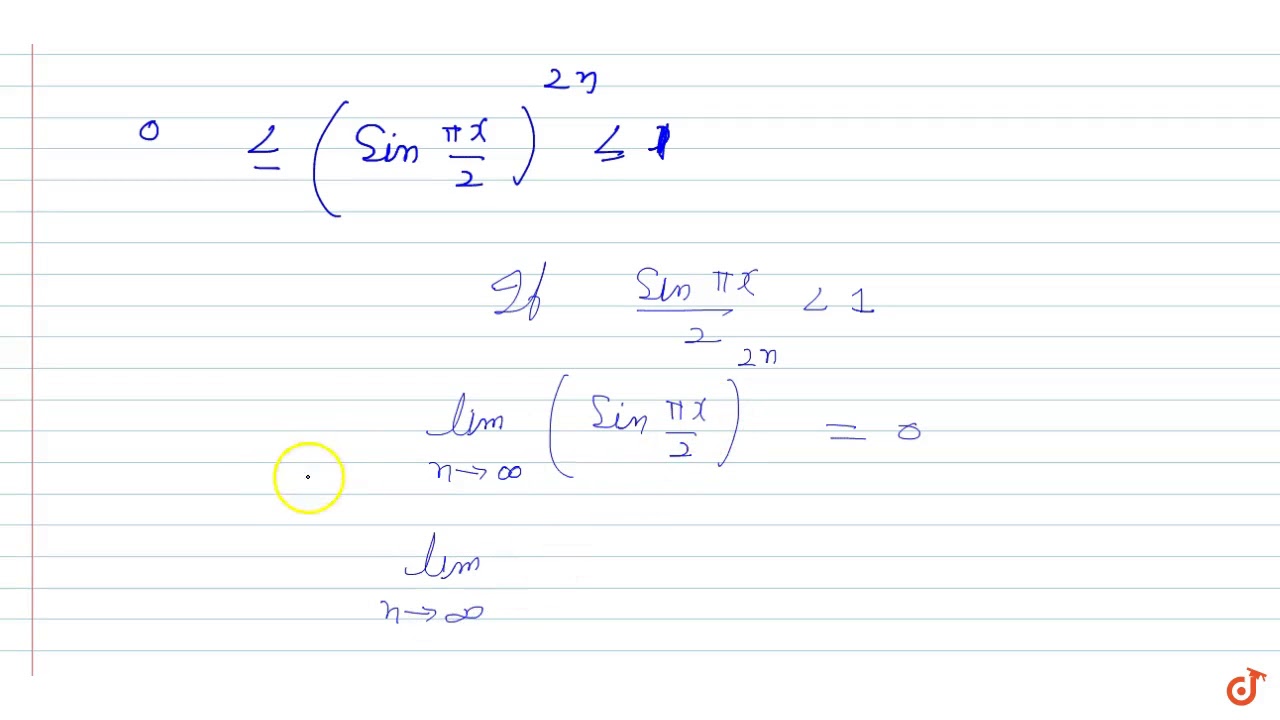 0 ≤ (Sin πx/2)^2n ≤ 1
If Sin πx/2 < 1
lim n→∞ (Sin πx/2)^2n = 0
lim n→∞